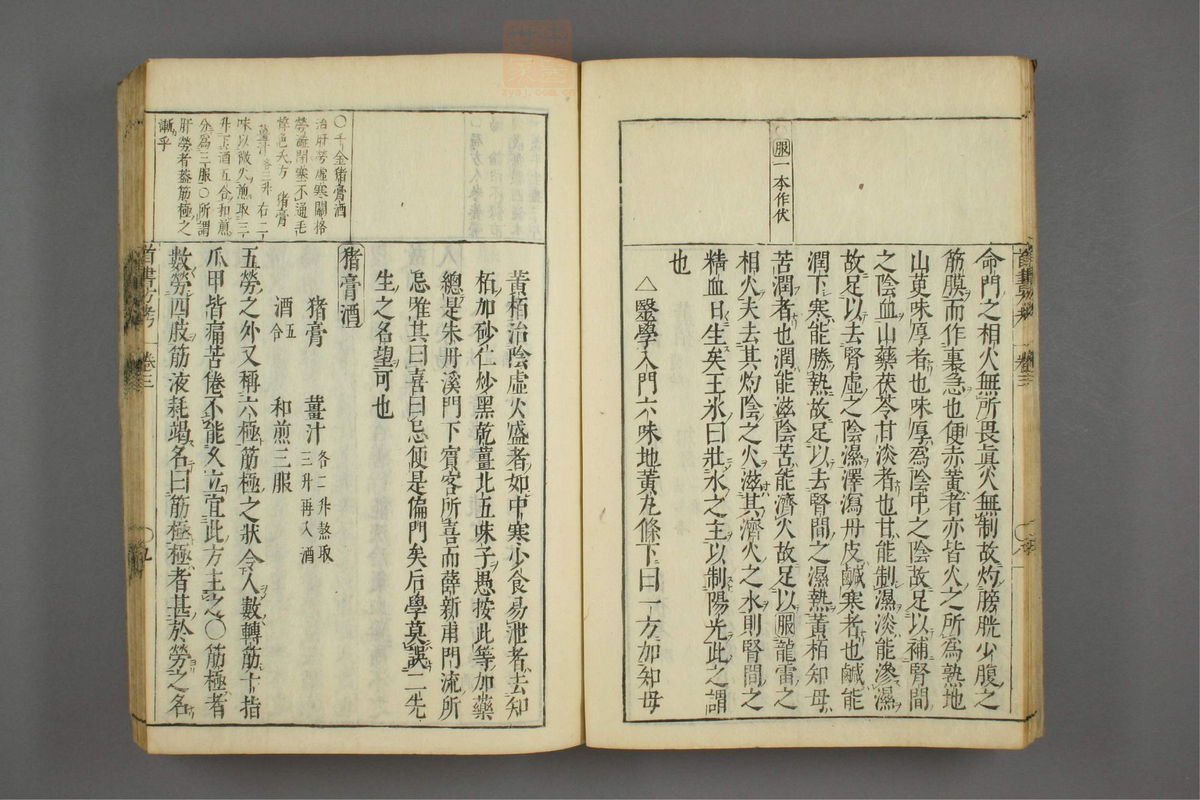 服一本作伏
命門之相火無所畏眞火無制故灼膀胱少腹之
筋膜而作裏急也便赤黃者亦皆火之所為熟地
山茰味厚者也味厚為陰中之陰故足以補腎間
之陰血山藥茯苓甘淡者也甘能制濕淡能滲濕
故足以去腎虛之陰濕澤瀉丹皮鹹寒者也鹹能
潤下寒能勝熱故足以去腎間之濕熱黃栢知母
苦潤者也潤能滋陰苦能濟火故足以服龍雷之
相火夫去其灼陰之火滋其濟火之水則腎間之
精血日生矣王氷曰壯水之主以制陽光此之謂
也
△醫學入門六味地黃丸條下曰一方加知母
首書 卷三
〇千金猪膏酒
治肝勞虛寒關格
勞澁閉塞不通毛
悴色夭方 猪膏
薑汁各三升 右二
味以微火煎取三
升下酒五合和煎
分為三服〇所謂
肝勞者葢筋極之
漸乎
黃栢治陰虛火盛者如中寒少食易泄者去知
栢加砂仁炒黑乾薑北五味子愚按此等加藥
總是朱丹溪門下賓客所喜而薛新甫門流所
忌唯其曰喜曰忌便是偏門矣后學莫誤二先
生之名望可也
猪膏酒
猪膏 薑汁各二升熬取三升再入酒
酒五合 和煎三服
五勞之外又稱六極筋極之狀令人數轉筋十指
爪甲皆痛苦倦不能久立宜此方主之〇筋極者
數勞四肢筋液耗竭名曰筋極極者甚於勞之名
首書方考 卷三 〇九